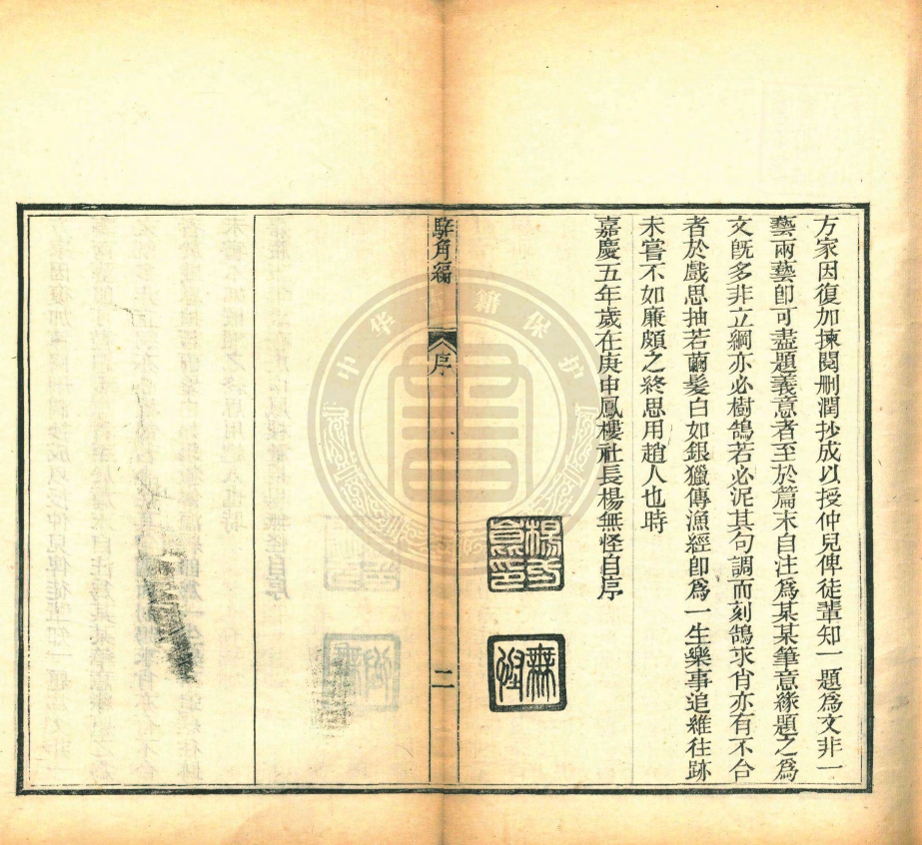 方家因復加揀閱刪潤抄成以授仲兒俾徒輩知一題爲文非一
藝兩藝卽可盡題義意者至於篇末自注爲某某筆意緣題之爲
文旣多非立綱亦必樹鵠若必泥其句調而刻鵠求肖亦有不合
者於戲思抽若繭髮白如銀獵傳漁經卽爲一生樂事追維往跡
未嘗不如廉頗之終思用趙人也時
嘉慶五年歲在庚申鳳樓社長楊無怪自序
無怪
騂角編
序
二
中华古籍保护